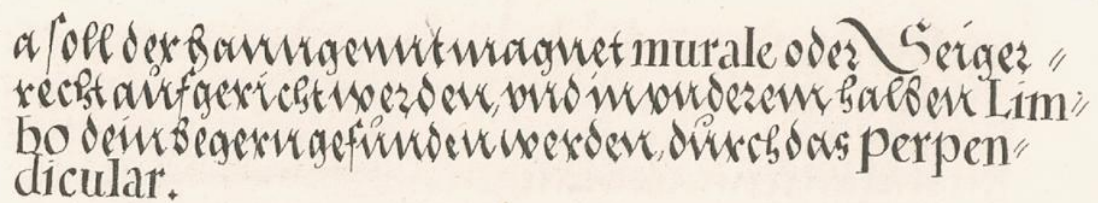 a soll der hanngennt magnet murale oder Seiger〃
recht aůfgericht werden, vnd in vnderem halben Lim〃
bo dein begern gefůnden werden, důrch das Perpen〃
dicular.